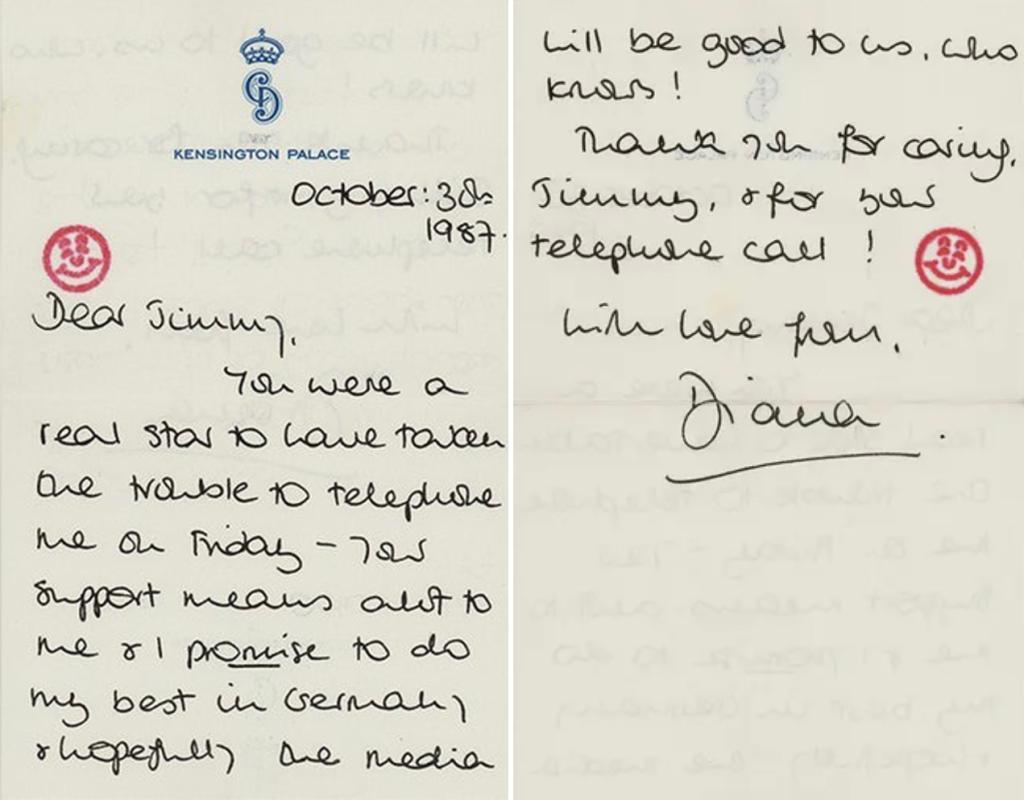 KENSINGTON PALACE
October: 30th
1987.
Dear Jimmy,
You were a
real star to have taken
the trouble to telephone
me on Friday - your
support means alot to
me & I promise to do
my best in Germany
& hopefully the media
will be good to us, who
knows!
Thank you for caring,
Jimmy, & for your
telephone call !
with love from,
Diana.